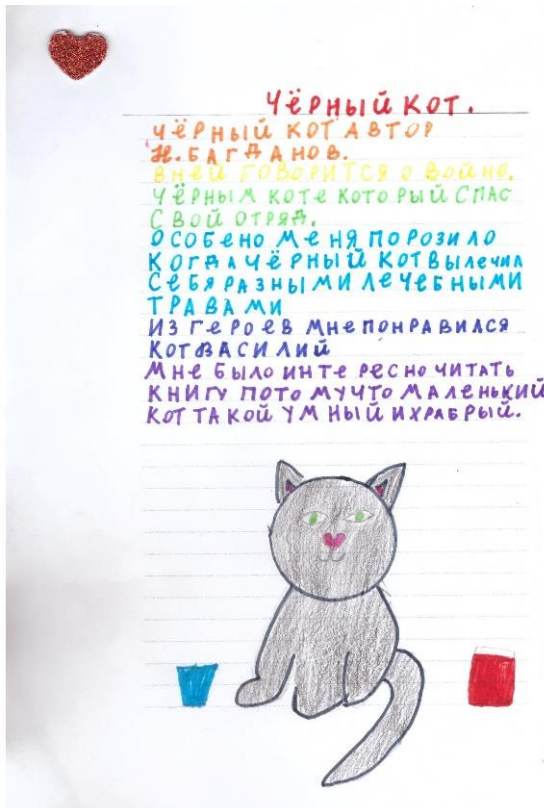 ЧЁРНЫЙ КОТ.
ЧЁРНЫЙ КОТ АВТОР
Н. БАГДАНОВ.
ВНЕЙ ГОВОРИТСЯ О ВОЙНЕ.
ЧЁРНЫМ КОТЕ КОТОРЫЙ СПАС
СВОЙ ОТРЯД.
ОСОБЕНО МЕНЯ ПОРОЗИЛО
КОГДА ЧЁРНЫЙ КОТ ВЫЛЕЧИЛ
СЕБЯ РАЗНЫМИ ЛЕЧЕБНЫМИ
ТРАВАМИ
ИЗ ГЕРОЕВ МНЕ ПОНРАВИЛСЯ
КОТ ВАСИЛИЙ
МНЕ БЫЛО ИНТЕРЕСНО ЧИТАТЬ
КНИГУ ПОТОМУЧТО МАЛЕНЬКИЙ
КОТ ТАКОЙ УМНЫЙ И ХРАБРЫЙ.